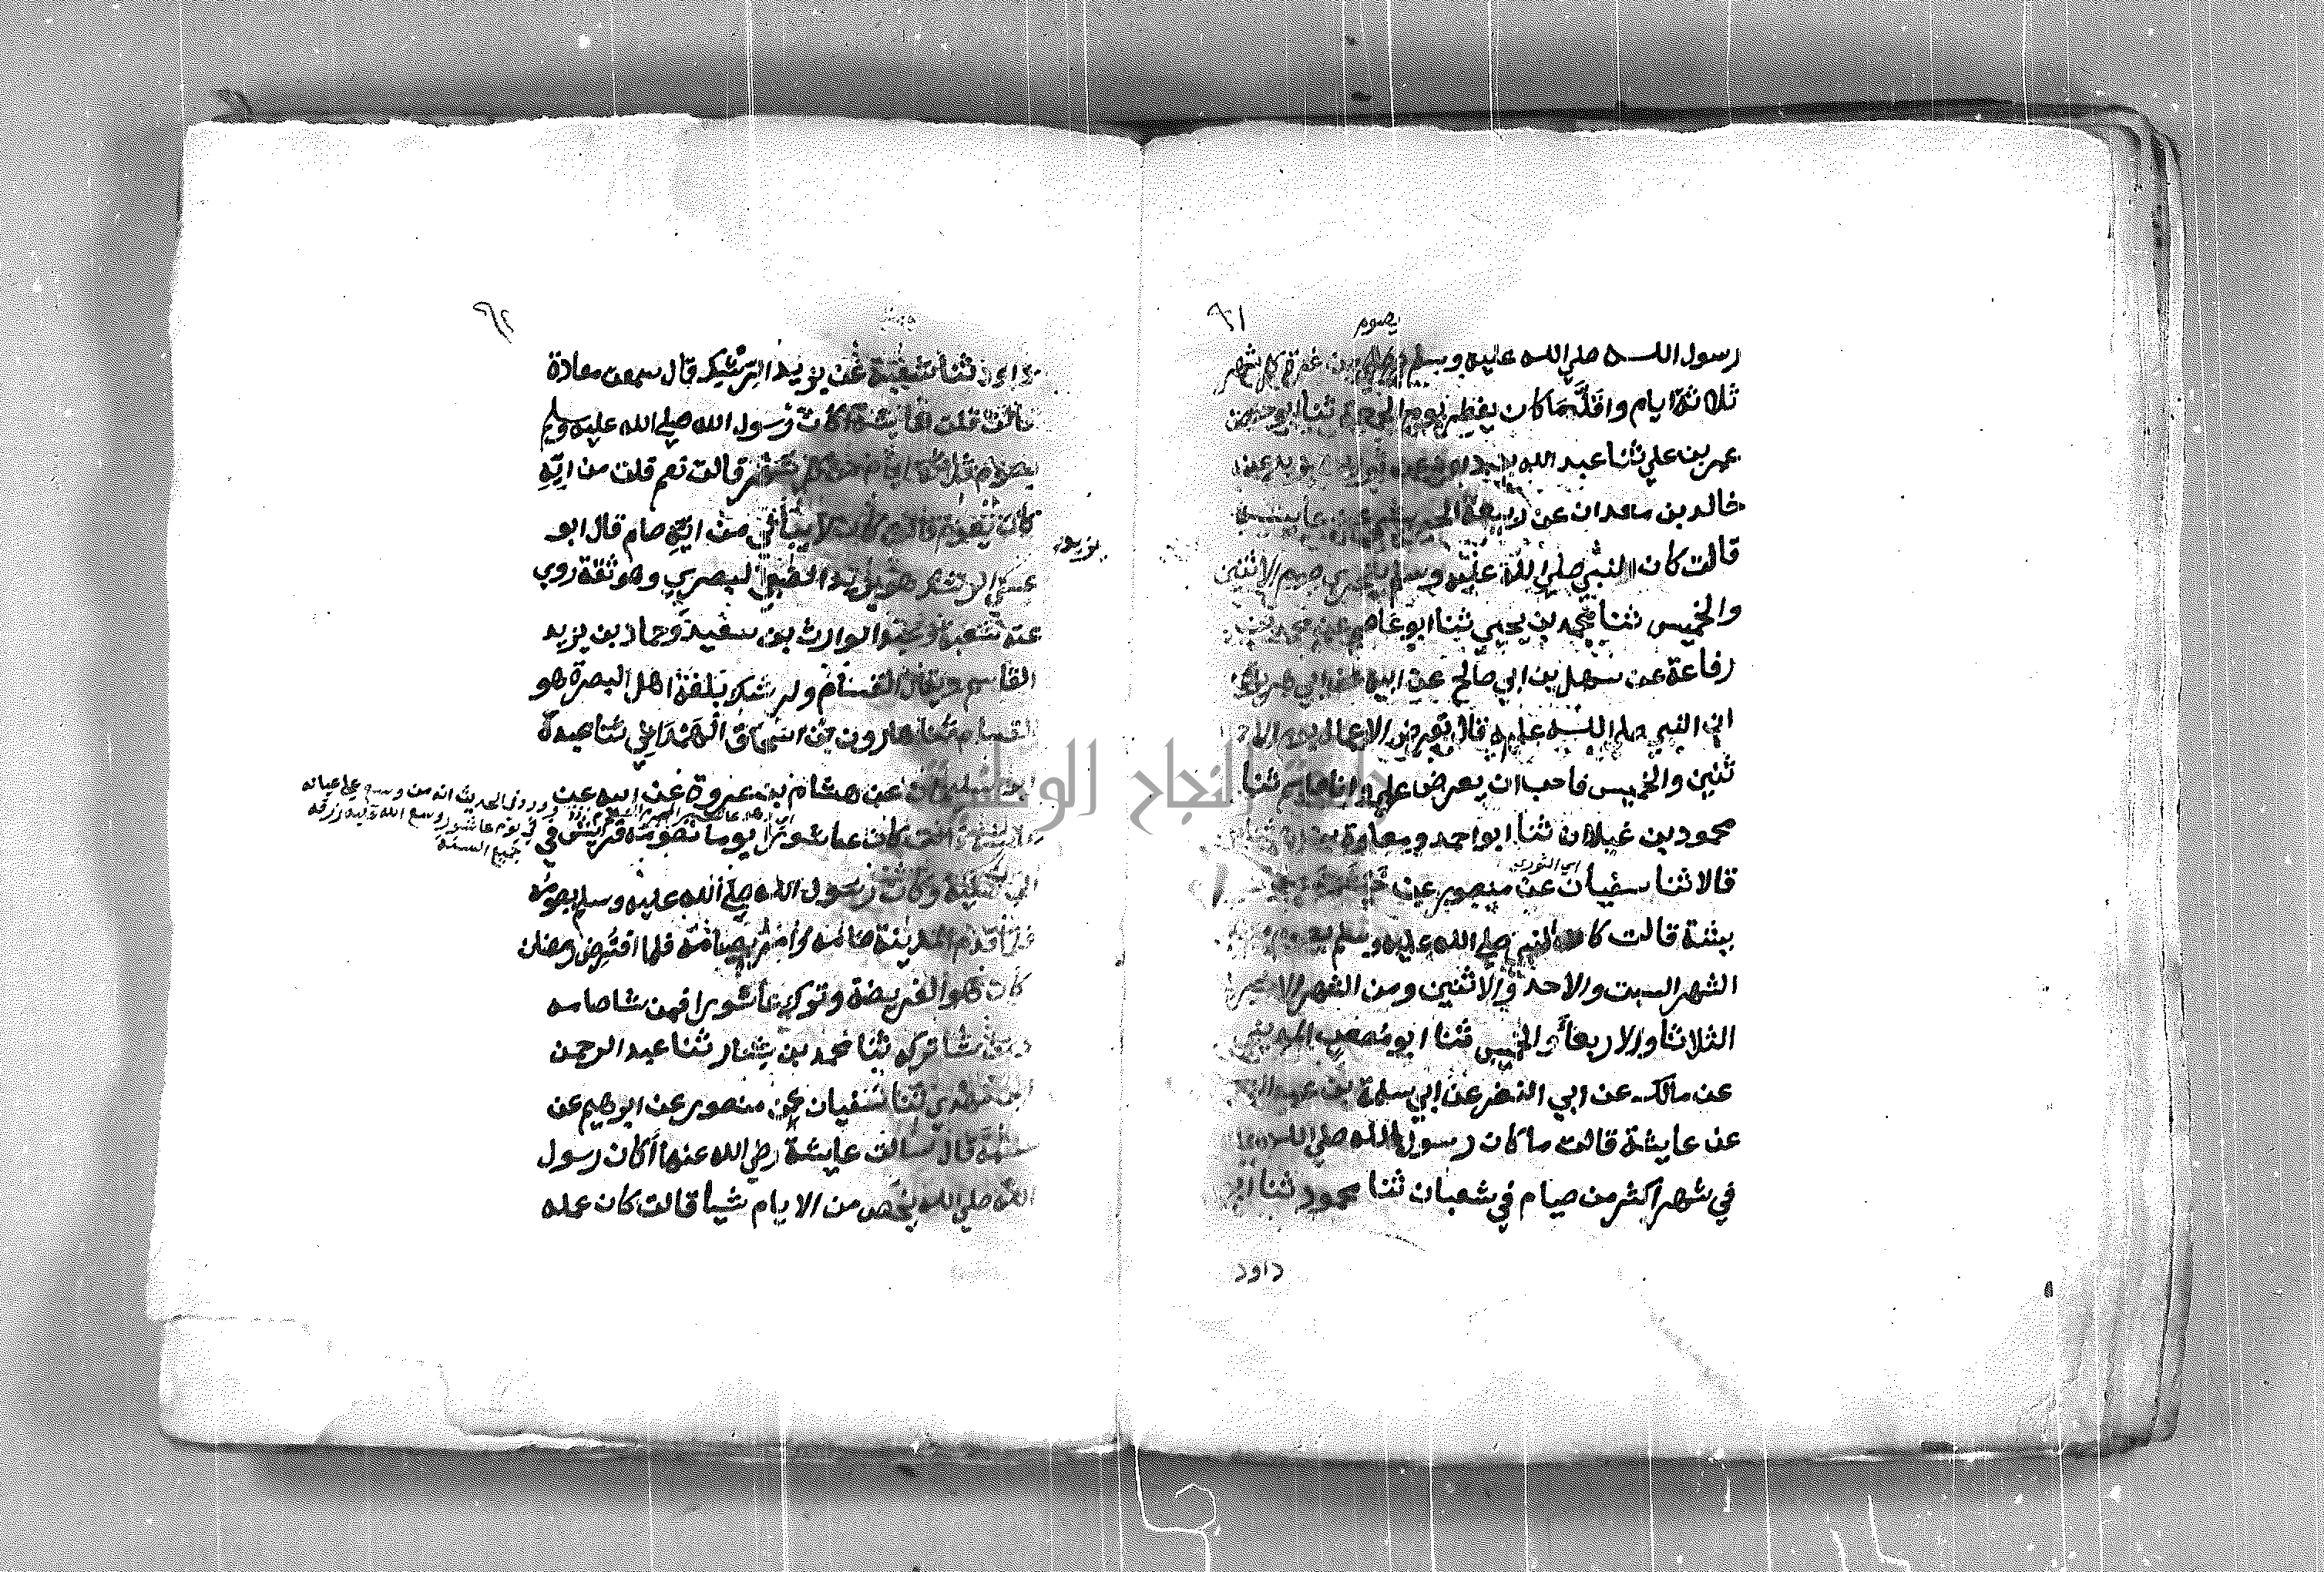 ٩١
يصوم
رسول الله صلي الله عليه وسلم من غرة كل شهر
ثلاثة ايام واقلما كان يفطر يوم الجمعة ثنا ابو حفص
عمر بن علي ثنا عبد الله بن داود عن ثور بن يزيد عن
خالد بن معدان عن ربيعة الجرشي عن عايشة
قالت كان النبي صلي الله عليه وسلم يتحري صوم الاثنين
والخميس ثنا محمد بن يحيي ثنا ابو عاصم عن محمد بن
رفاعة عن سهل بن ابي صالح عن ابيه عن ابي هريرة
ان النبي صلي الله عليه قال تعرض الاعمال يوم الا
ثنين والخميس فاحب ان يعرض عملي وانا صايم ثنا
محمود بن غيلان ثنا ابو احمد ومعاوية بن
قالا ثنا سفيان عن منصور عن خيثمة
اي الثوري
يشة قالت كان النبي صلي الله عليه وسلم يصوم
الشهر السبت والاحد والاثنين ومن الشهر الاخر
الثلاثا والاربعا والخميس ثنا ابو مصعب المديني
عن مالك عن ابي النضر عن ابي سلمة بن عبد
عن عايشة قالت ما كان رسول الله صلي الله
في شهر اكثر من صيام في شعبان ثنا محمود ثنا ابو
داود
٩٢
داود ثنا شعبة عن يزيد الرشك قال سمعت معاذة
قالت قلت لعايشة اكان رسول الله صلي الله عليه وسلم
يصوم ثلاثة ايام من كل شهر قالت نعم قلت من ايه
كان يصوم قالت كان لا يبالي من ايه صام قال ابو
يزيد
عيسي الرشك هو يزيد الضبي البصري وهو ثقة روي
عنه شعبة وعبد الوارث بن سعيد وحماد بن يزيد
القاسم ويقال القسام والرشك بلغة اهل البصرة هو
القسام ثنا هارون بن اسحاق الهمداني ثنا عبدة
بن سليمان عن هشام بن عروة عن ابيه عن
وورد في الحديث انه من وسع علي عياله
في يوم عاشورا وسع الله عليه رزقه
جميع السنة
عايشة قالت كان عاشورا يوما تصومه قريش في
الجاهلية وكان رسول الله صلي الله عليه وسلم يصومه
فلما قدم المدينة صامه وامر بصيامه فلما افترض رمضان
كان هو الفريضة وترك عاشورا فمن شا صامه
ومن شا تركه ثنا محمد بن بشار ثنا عبد الرحمن
ابن مهدي ثنا سفيان عن منصور عن ابرهيم عن
علقمة قال سالت عايشة رضي الله عنها أكان رسول
الله صلي الله يخص من الايام شيأ قالت كان عمله
جامعة النجاح الوطنية